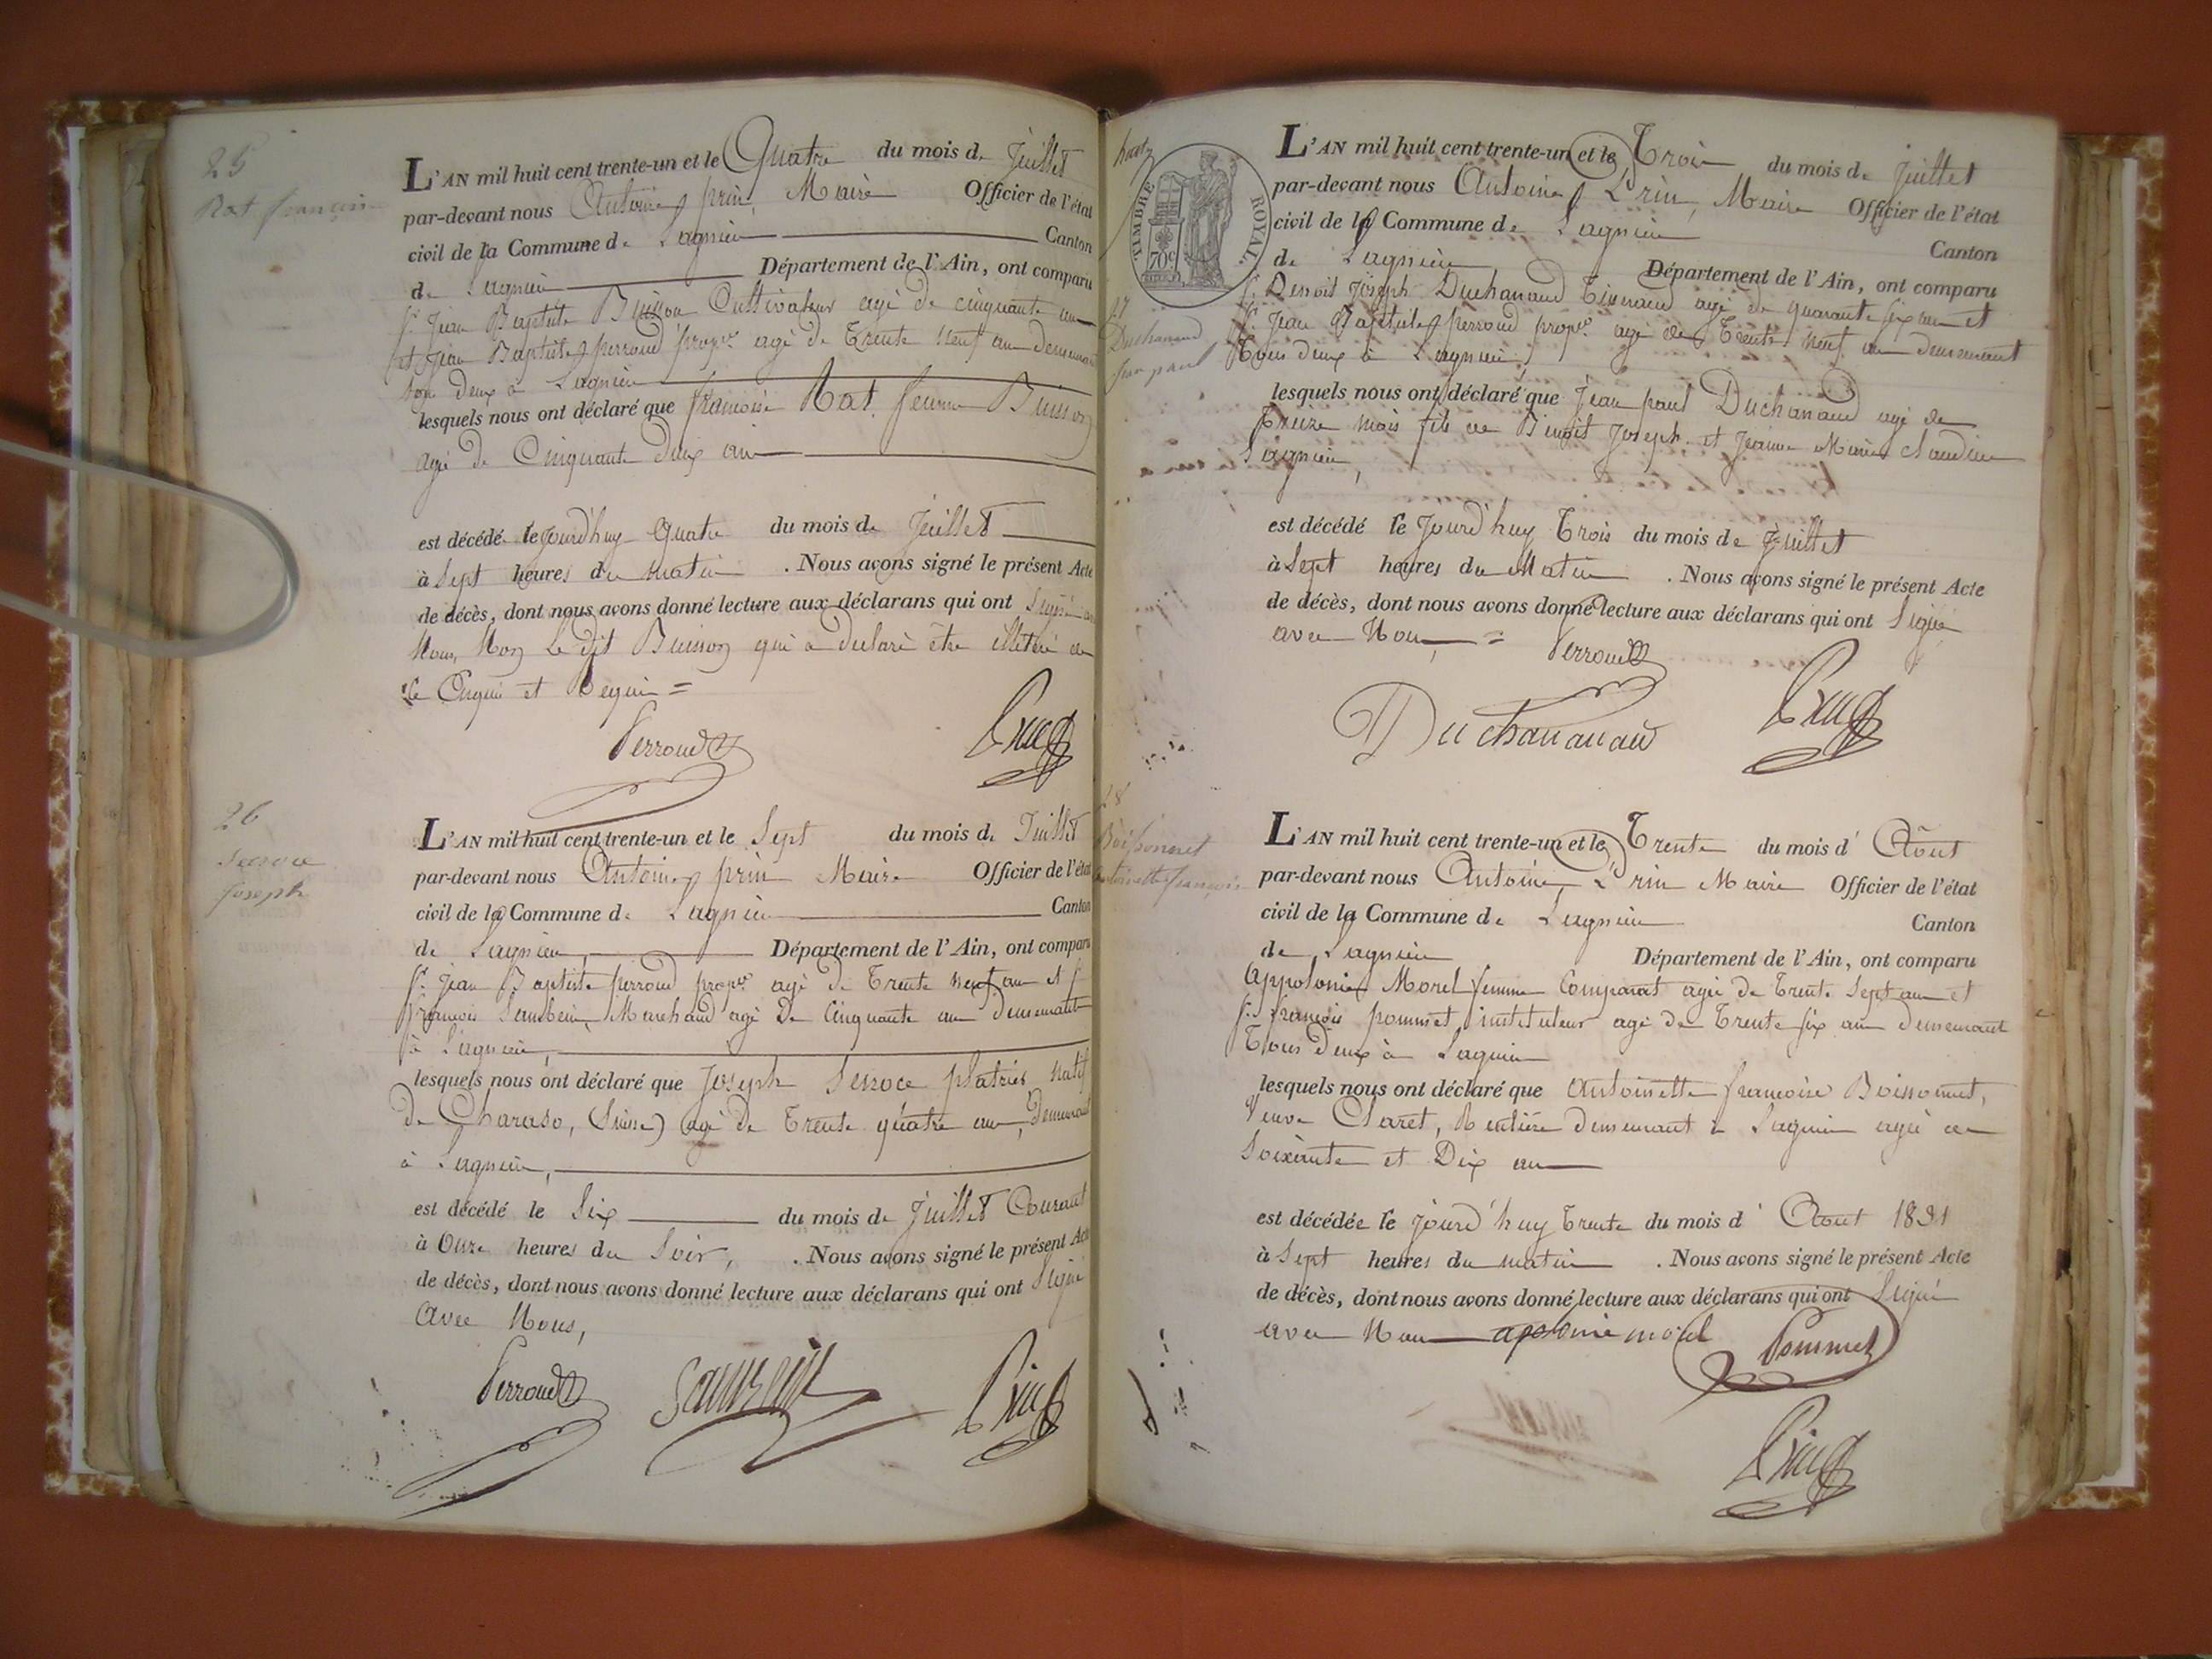 25
Rat françoise
L'AN mil huit cent trente-un et le Quatre du mois de Juillet
par-devant nous Antoine prin, Maire Officier de l'état
civil de la Commune de Lagnieu Canton
de Lagnieu Département de l'Ain, ont comparu
Sr. Jean Baptiste Buisson Cultivateur agé de cinquante ans
et Jean Baptiste perroud propre. agé de Trente neuf ans demeurant
tous deux à Lagnieu
lesquels nous ont déclaré que françoise Rat femme Buisson
agé de Cinquante deux ans
est décédé le Jourd'huy Quatre du mois de Juillet
à Sept heures du matin . Nous avons signé le présent Acte
de décès, dont nous avons donné lecture aux déclarans qui ont Signé
Nous, Non Le dit Buisson qui a declaré être illitéré de
ce Enquis et Requis =
Perroud Prin
26
Serroce
Joseph
L'AN mil huit cent trente-un et le Sept du mois de Juillet
par-devant nous Antoine prin Maire Officier de l'état
civil de la Commune de Lagnieu Canton
de Lagnieu, Département de l'Ain, ont comparu
Sr. Jean Baptiste perroud propre. agé de Trente neuf ans et S
françois Marchand agé De Cinquante ans demeurant
à Lagnieu,
lesquels nous ont déclaré que Joseph Serroce platrier natif
De Charaso, (Suisse) agé De Trente quatre ans, Demeurant
à Lagnieu,
est décédé le Six du mois de Juillet Courant
à Onze heures du Soir, . Nous avons signé le présent Acte
de décès, dont nous avons donné lecture aux déclarans qui ont Signé
Avec Nous,
Perroud Prin
TIMBRE ROYAL
70c
27
Duchanaud
Jean paul
L'AN mil huit cent trente-un et le Trois du mois de Juillet
par-devant nous Antoine Prin, Maire Officier de l'état
civil de la Commune de Lagnieu Canton
de Lagnieu Département de l'Ain, ont comparu
Sr. Benoit Joseph Duchanaud Tisserand agé de quarante six ans et
Sr. Jean Baptiste perroud propre. agé de Trente Neuf ans demeurant
Tous deux à Lagnieu,
lesquels nous ont déclaré que Jean paul Duchanaud agé de
Treize mois fils de Benoit Joseph et Jeanne Marie Claudine
Lagnieu,
est décédé le Jourd'huy Trois du mois de Juillet
à Sept heures du Matin . Nous avons signé le présent Acte
de décès, dont nous avons donné lecture aux déclarans qui ont Signé
avec Nous, = Perroud
Duchanaud Prin
28
Boissonnet
Antoinette françoise
L'AN mil huit cent trente-un et le Trente du mois d' Août
par-devant nous Antoine, Prin Maire Officier de l'état
civil de la Commune de Lagnieu Canton
de Lagnieu Département de l'Ain, ont comparu
Appolonie Morel femme Comparat agée de Trente Sept ans et
Sr. françois pommet instituteur agé de Trente six ans demeurant
Tous Deux à Lagnieu
lesquels nous ont déclaré que Antoinette françoise Boissonnet,
Veuve Claret, Rentière demeurant à Lagnieu agée de
Soixante et Dix ans
est décédée le jourd'huy Trente du mois d' Aout 1831
à Sept heures du matin . Nous avons signé le présent Acte
de décès, dont nous avons donné lecture aux déclarans qui ont Signé
avec Nous apolonie morel Pommet
Prin